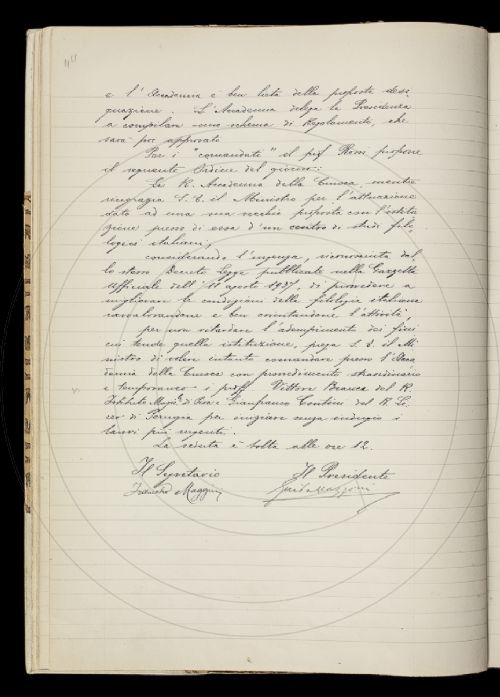 e l'Accademia è ben lieta della proposta desi-
gnazione. L'Accademia delega la Presidenza
a compilare uno schema di Regolamento, che
sarà poi approvato
Per i "comandati" il prof. Rossi propone
il seguente Ordine del giorno:
La R. Accademia della Crusca, mentre
ringrazia S. E. il Ministro per l'attuazione
data ad una sua vecchia proposta con l'istitu-
zione presso di essa d'un centro di studi filo-
logici italiani;
considerando l'urgenza, riconosciuta dal-
lo stesso Decreto Legge pubblicato nella Gazzetta
Ufficiale dell'11 agosto 1937, di provvedere a
migliorare le condizioni della filologia italiana
ravvalorandone e ben orientandone l'attività,
per non ritardare l'adempimento dei fini
cui tende quella istituzione, prega S. E. il Mi-
nistro di volere intanto comandare presso l'Acca-
demia della Crusca con provvedimento straordinario
e temporaneo i proff. Vittore Branca del R.
Istituto Magis. di e Gianfranco Contini del R. Li-
ceo di Perugia per iniziare senza indugio i
lavori più urgenti.
La seduta è tolta alle ore 12.
Il Segretario Il Presidente
Francesco Maggini Guido Mazzoni